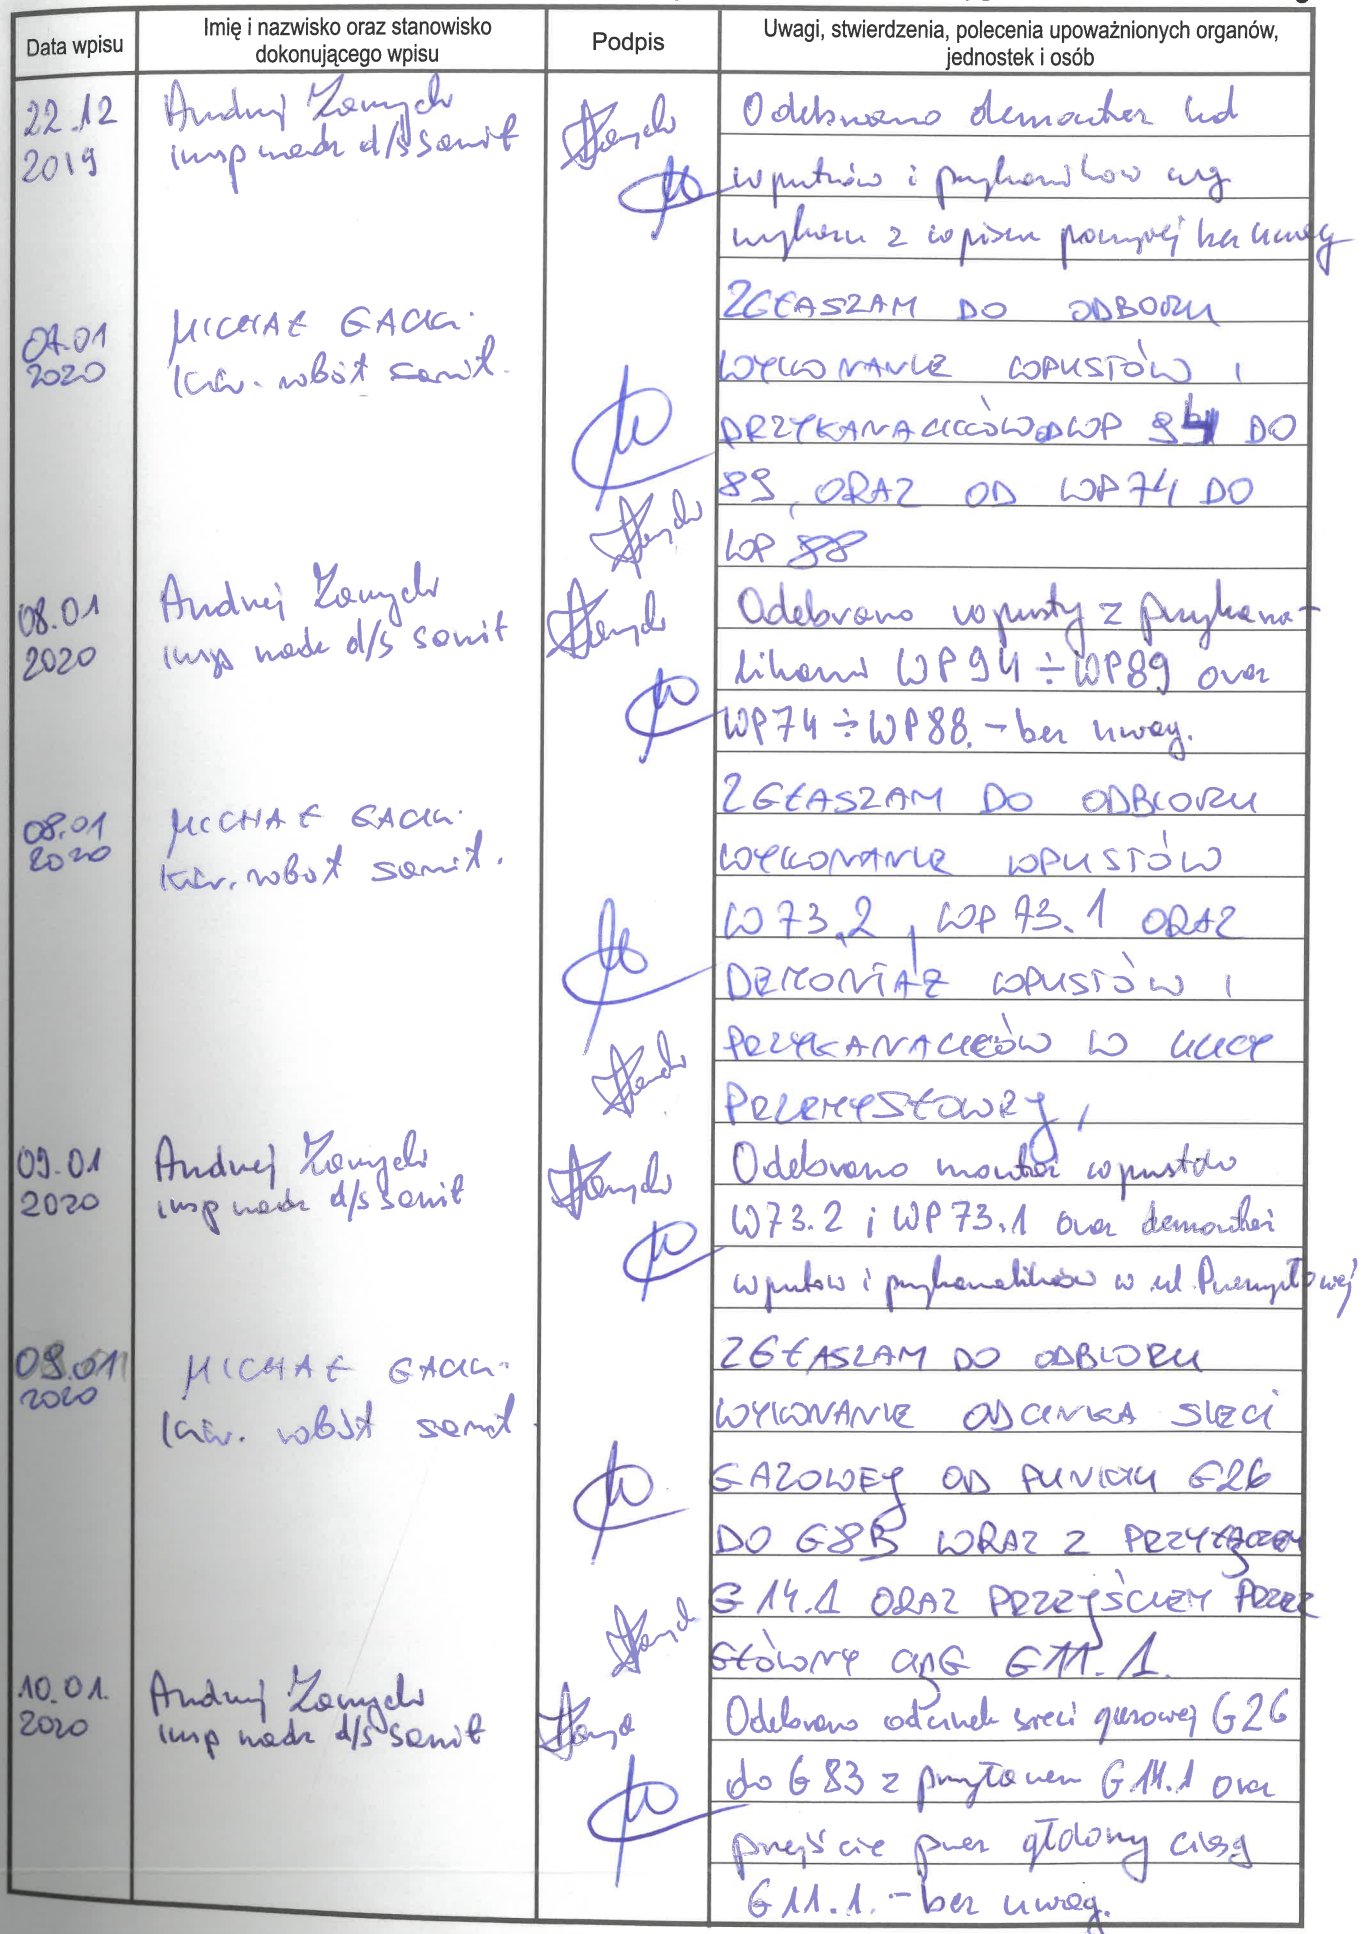 Data wpisu
Imię i nazwisko oraz stanowisko
dokonującego wpisu
Podpis
Uwagi, stwierdzenia, polecenia upoważnionych organów,
jednostek i osób
22.12
2019
Andrzej
insp nadz d/s sanit
Odebrano demontaż
wpustów i przykanalików wg
wykazu z wpisem powyżej bez uwag
07.01
2020
MICHAŁ GACKI
Kier. robót sanit.
ZGŁASZAM DO ODBIORU
WYKONANIE WPUSTÓW I
PRZYKANALIKÓW OD WP 94 DO
89, ORAZ OD WP74 DO
WP 88
08.01
2020
Andrzej
insp nadz d/s sanit
Odebrano wpusty z przykana-
likami WP94 ÷ WP89 oraz
WP74 ÷ WP88. - bez uwag.
08.01
2020
MICHAŁ GACKI
Kier. robót sanit.
ZGŁASZAM DO ODBIORU
WYKONANIE WPUSTÓW
W73.2, WP 73.1 ORAZ
DEMONTAŻ WPUSTÓW I
PRZYKANALIKÓW W ULICY
PRZEMYSŁOWEJ,
09.01
2020
Andrzej
insp nadz d/s sanit
Odebrano montaż wpustów
W73.2 i WP73.1 oraz demontaż
wpustów i przykanalików w ul. Przemysłowej
09.01
2020
MICHAŁ GACKI
Kier. robót sanit.
ZGŁASZAM DO ODBIORU
WYKONANIE ODCINKA SIECI
GAZOWEJ OD PUNKTU G26
DO G8B WRAZ Z PRZYŁĄCZEM
G14.1 ORAZ PRZEJŚCIEM PRZEZ
GŁÓWNY CIĄG G11.1.
10.01.
2020
Andrzej
insp nadz d/s sanit
Odebrano odcinek sieci gazowej G26
do G83 z przyłączem G14.1 oraz
przejście przez główny ciąg
G11.1. - bez uwag.